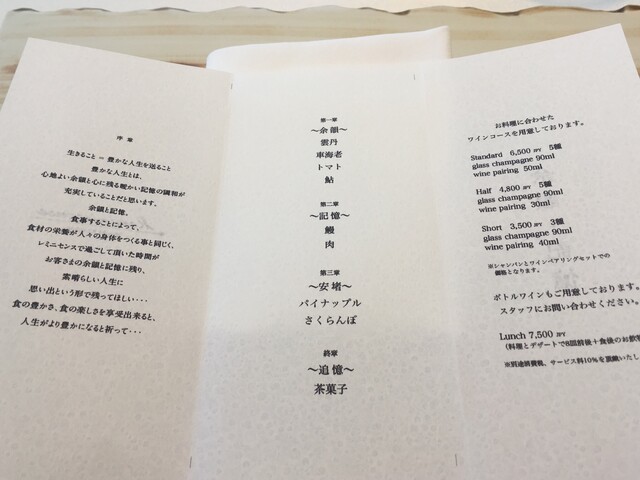 序章
生きること = 豊かな人生を送ること
豊かな人生とは、
心地よい余韻と心に残る暖かい記憶の調和が
充実していることだと思います。
余韻と記憶。
食事することによって、
食材の栄養が人々の身体をつくる事と同じく、
レミニセンスで過ごして頂いた時間が
お客さまの余韻と記憶に残り、
素晴らしい人生に
思い出という形で残ってほしい・・・
食の豊かさ、食の楽しさを享受出来ると、
人生がより豊かになると祈って・・・
第一章
～余韻～
雲丹
車海老
トマト
鮎
第二章
～記憶～
鰻
肉
第三章
～安堵～
パイナップル
さくらんぼ
終章
～追憶～
茶菓子
お料理に合わせた
ワインコースを用意しております。
Standard 6,500 JPY 5種
glass champagne 90ml
wine pairing 50ml
Half 4,800 JPY 5種
glass champagne 90ml
wine pairing 30ml
Short 3,500 JPY 3種
glass champagne 90ml
wine pairing 40ml
※シャンパンとワインペアリングセットでの
価格となります。
ボトルワインもご用意しております。
スタッフにお問い合わせください。
Lunch 7,500 JPY
(料理とデザートで8皿前後＋食後のお飲
※別途消費税、サービス料10%を頂戴いたし